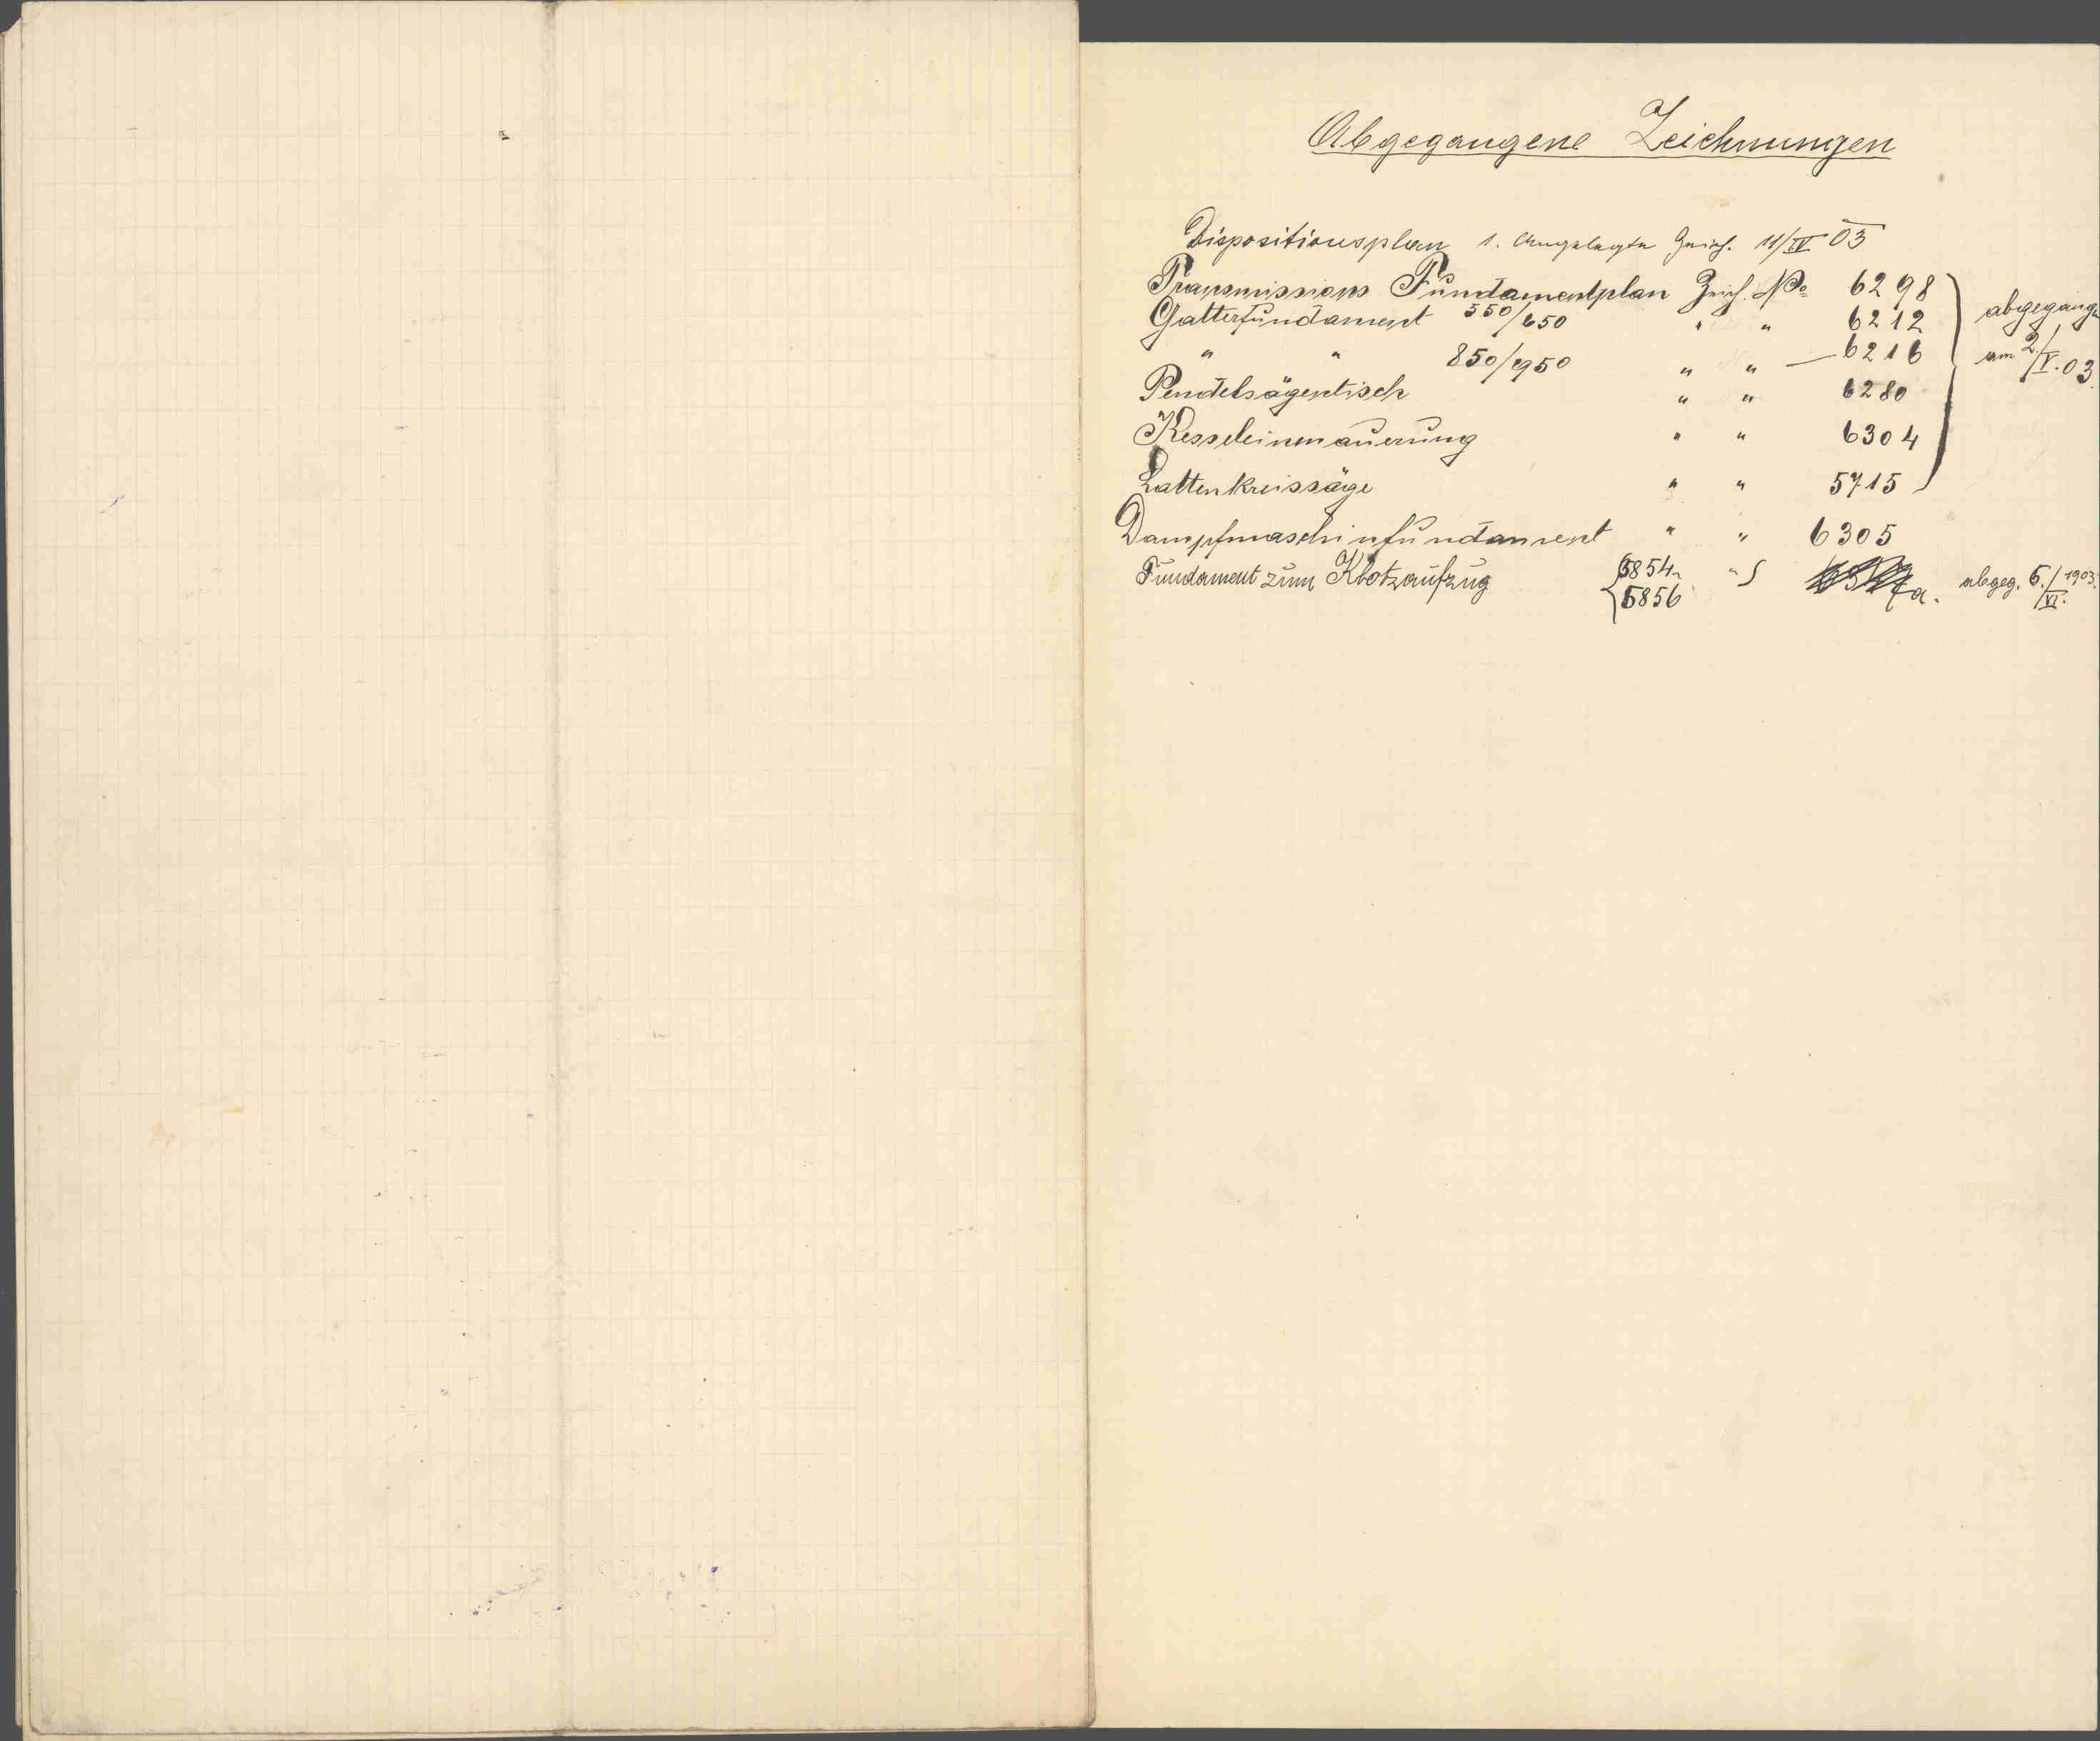 Abgegangene Zeichnungen
Dispositionsplan 1. Zeich. 11/IV 03
Transmissions Fundamentplan Zeich. No 6298
Gatterfundament 550/650 " " 6212
" " 850/950 " " — 6216
Pendelsägentisch " " 6280
Kesseleinmauerung " " 6304
Lattenkreissäge " " 5715
abgegangen
am 2/V.03.
Dampfmaschinfundament " " 6305
Fundament zum Klotzaufzug 5854 " abgeg. 6./VI. 1903.
5856